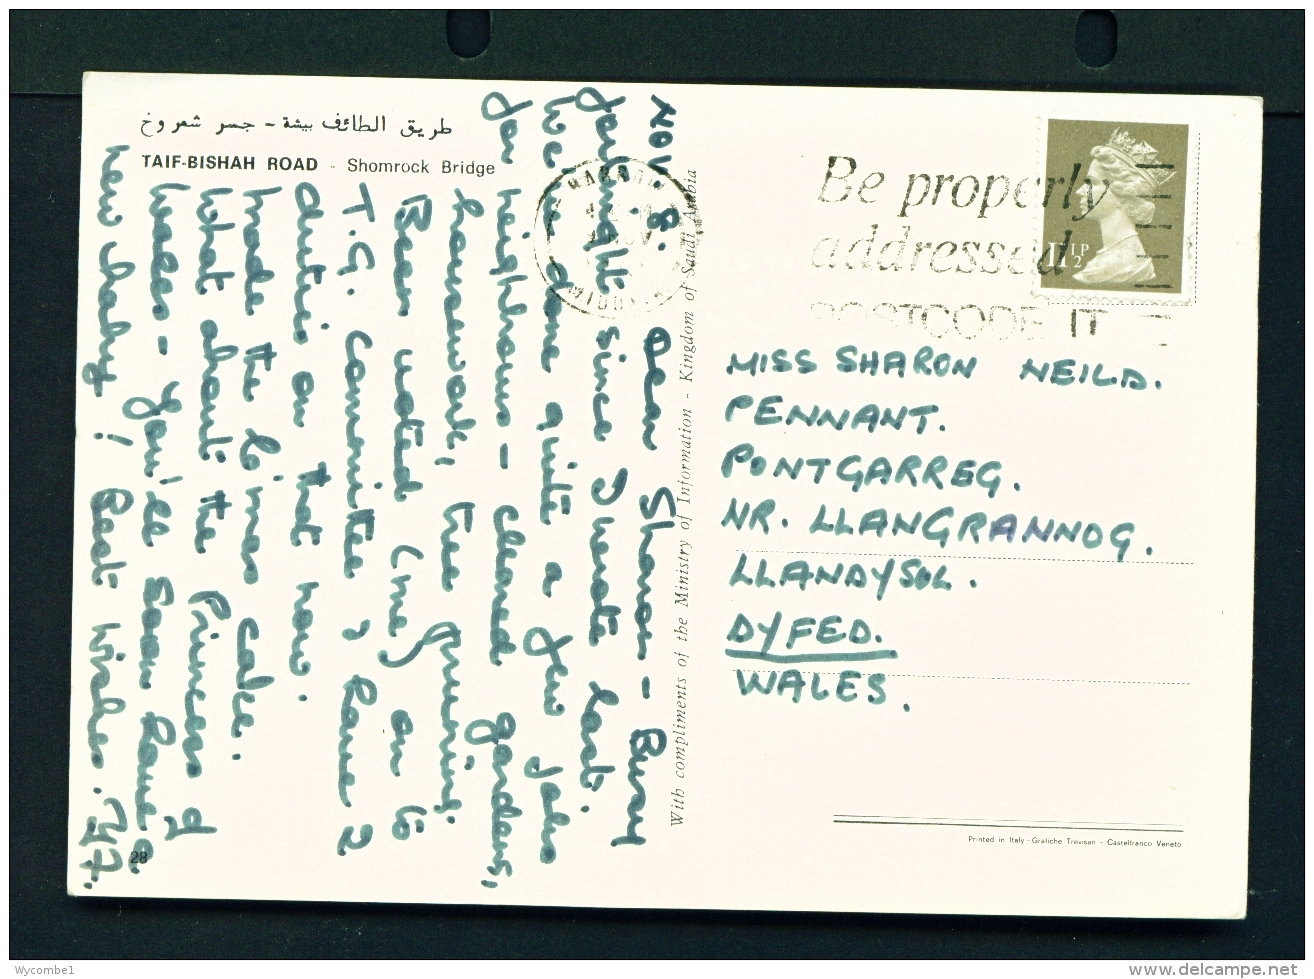 طريق الطائف بيشة - جسر شعروخ
TAIF-BISHAH ROAD - Shomrock Bridge
NOV 8. Dear Sharon - Busy
fortnight since I wrote last.
We have done quite a few jobs
for neighbours - cleaned gardens,
housework, tree pruning.
Been voted (me) on to
T.G. Committee & have 2
duties on that now.
Made the Xmas cake.
What about the Princess of
Wales - you'll soon have a
new baby! Best wishes.
28
With compliments of the Ministry of Information - Kingdom of Saudi Arabia
NOV
Be properly
addressed
POSTCODE IT
11½P
MISS SHARON NEILD.
PENNANT.
PONTGARREG.
NR. LLANGRANNOG.
LLANDYSUL.
DYFED.
WALES.
Printed in Italy - Grafiche Trevisan - Castelfranco Veneto
Wycombe1
delcampe.net